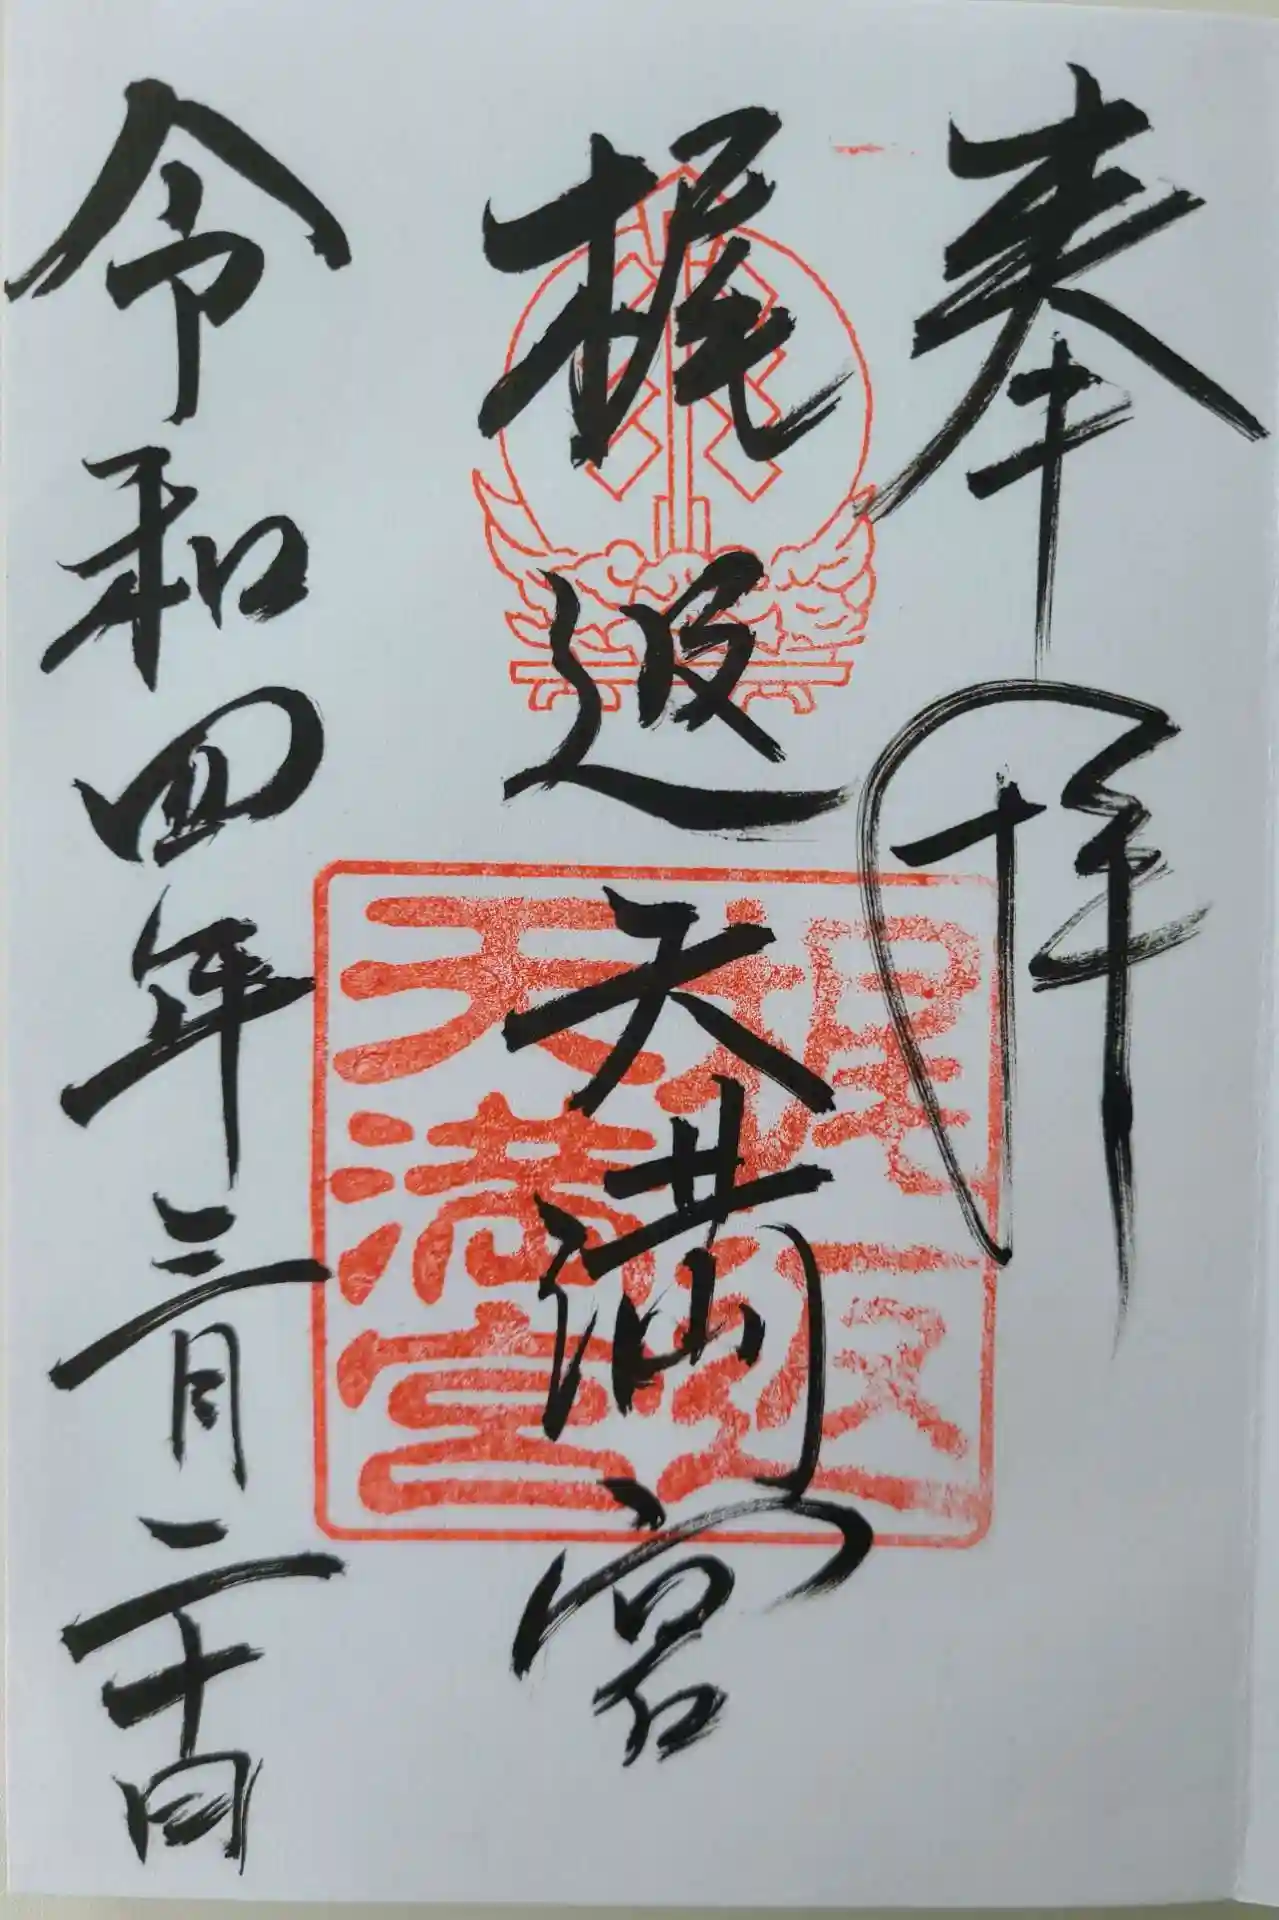 奉拝
梶返天満宮
梶返
天満宮
令和四年三月二十日